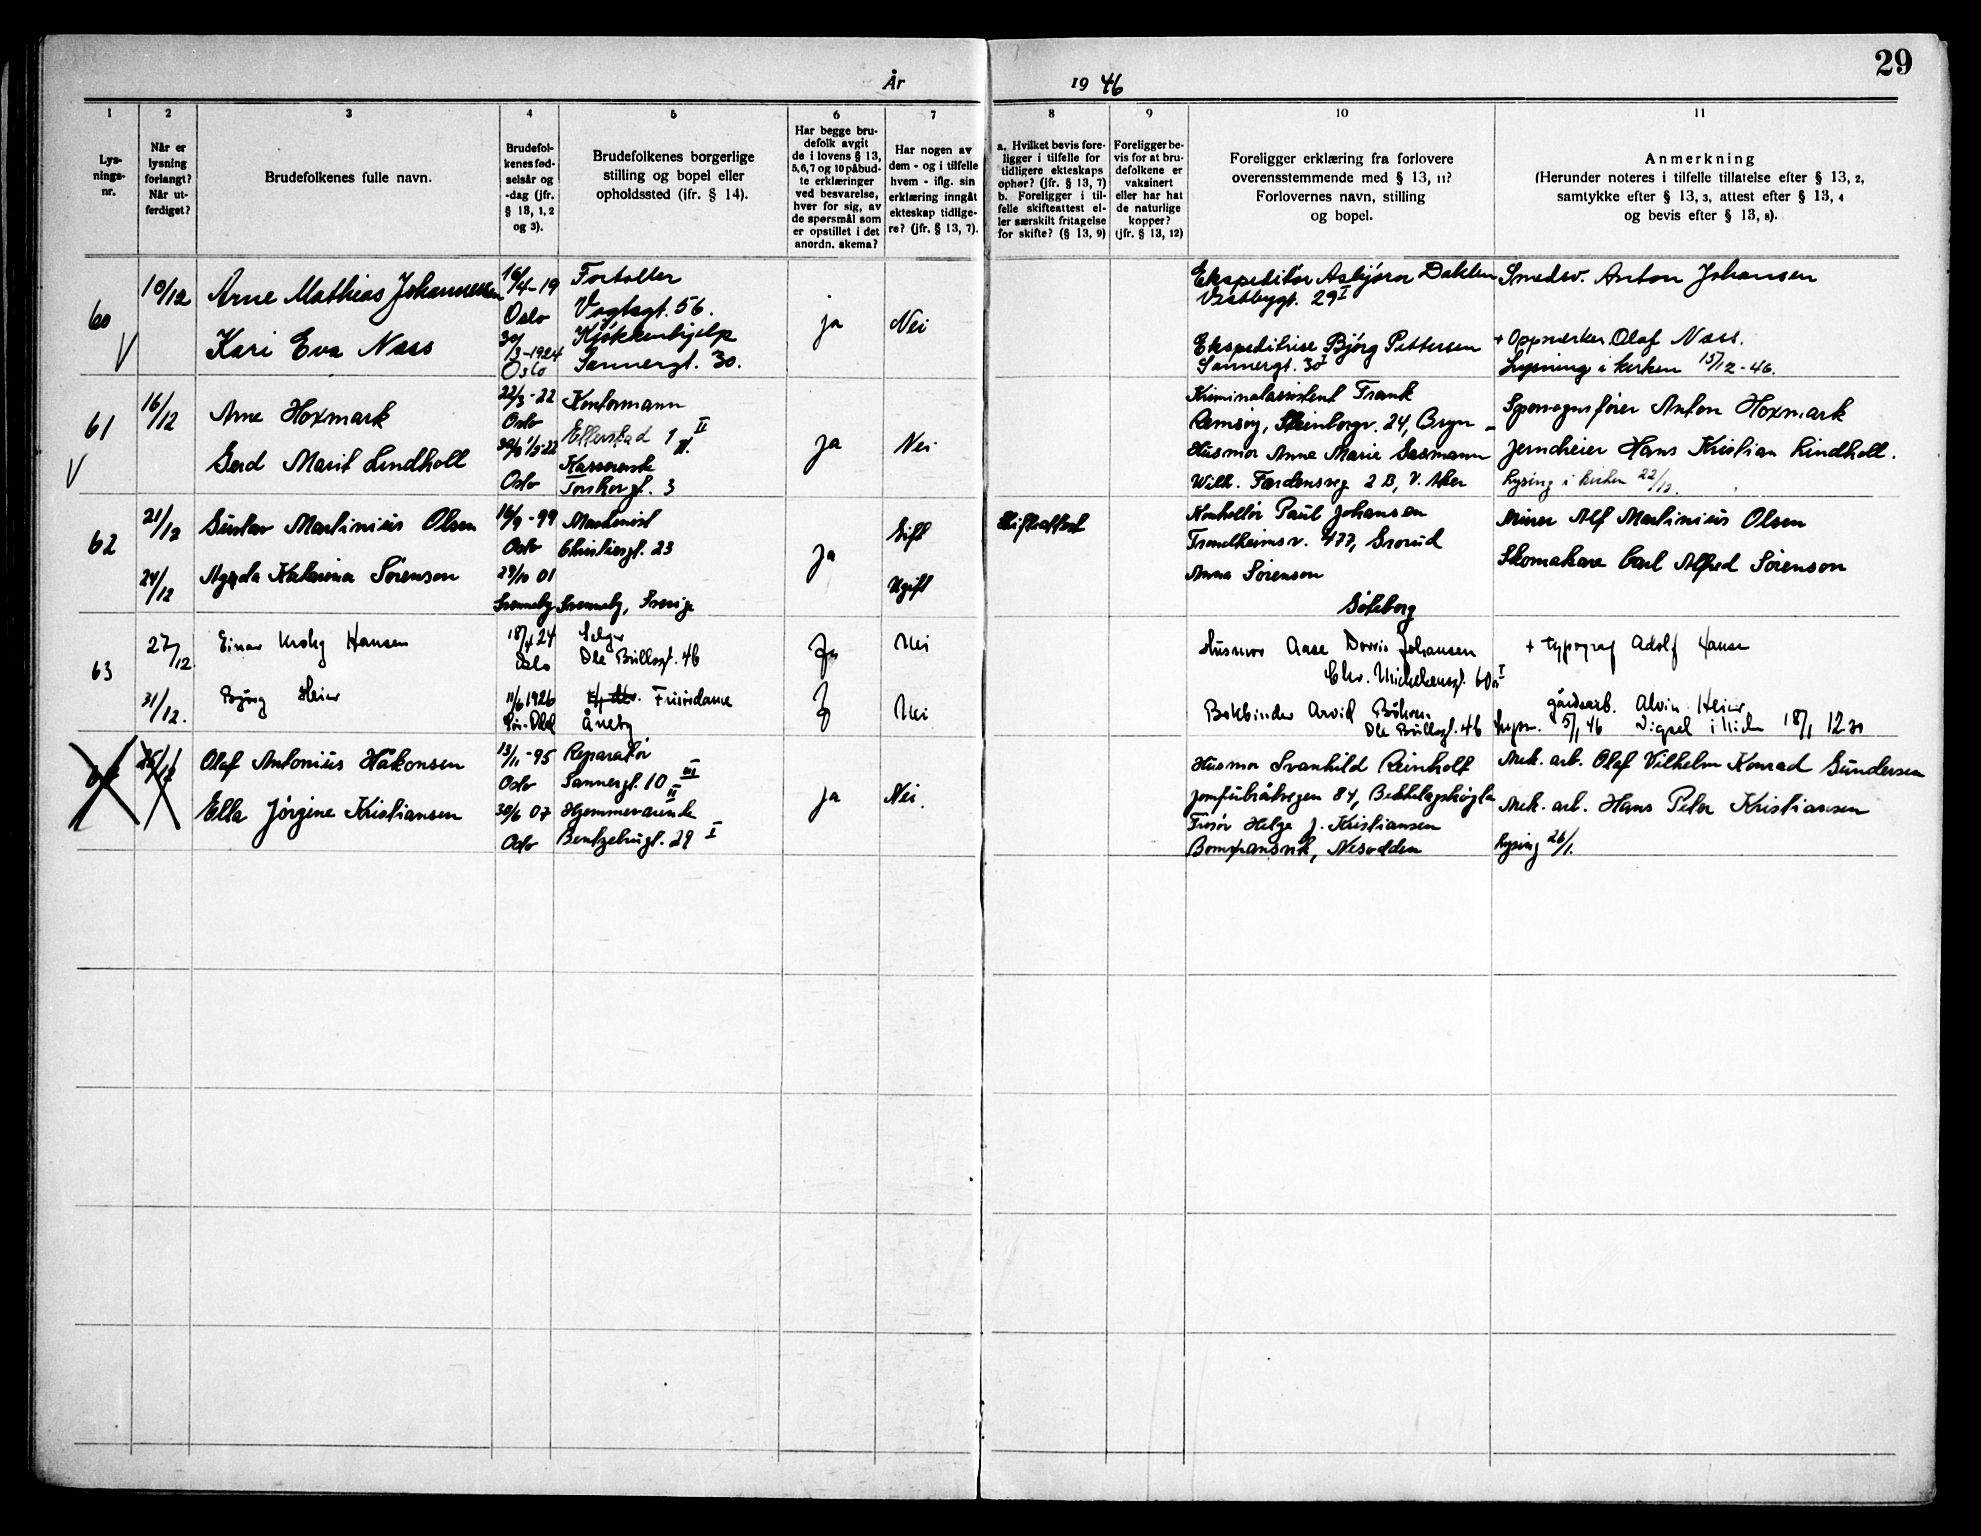 29
År 19 46
1
Lys-
nings-
nr.
2
Når er
lysning
forlangt?
Når ut-
ferdiget?
3
Brudefolkenes fulle navn.
4
Brudefol-
kenes fød-
selsår og
-dag (jfr.
§ 13, 1, 2
og 3).
5
Brudefolkenes borgerlige
stilling og bopel eller
opholdssted (jfr. § 14).
6
Har begge bru-
defolk avgit
de i lovens § 13,
5,6,7 og 10 påbud-
te erklæringer
ved besvarelse,
hver for sig, av
de spørsmål som
er opstillet i det
anordn. skema?
7
Har nogen av
dem - og i tilfelle
hvem - iflg. sin
erklæring inngåt
ekteskap tidlige-
re? (jfr. § 13, 7).
8
a. Hvilket bevis fore-
ligger i tilfelle for
tidligere ekteskaps
ophør? (jfr. § 13, 7)
b. Foreligger i til-
felle skifteattest el-
ler særskilt fritagelse
for skifte? (§ 13, 9)
9
Foreligger be-
vis for at bru-
defolkene er
vaksinert
eller har hat
de naturlige
kopper?
(jfr. § 13, 12)
10
Foreligger erklæring fra forlovere
overensstemmende med § 13, 11?
Forlovernes navn, stilling
og bopel.
11
Anmerkning
(Herunder noteres i tilfelle tillatelse efter § 13, 2,
samtykke efter § 13, 3, attest efter § 13, 4
og bevis efter § 13, 8).
60
10/12
Arne Mathias Johannessen
16/4-19
Oslo
Vogtsgt. 56.
Kari Eva Næss
30/3-1924
Oslo
Kjøkkenhjelp
Sannergt. 30.
ja
Nei
Ekspeditør Asbjørn Dahlen
Vestbygt. 29 I
Ekspeditrise Bjørg Pettersen
Sannergt. 30 I
Smedsv. Anton Johansen
+ Oppmerker Olaf Næss.
Lysning i kirken 15/12-46.
61
16/12
Arne Hoxmark
22/3-22
Oslo
Kontormann
Etterstad 1 II
Gerd Marit Lindholl
Oslo
Torshovgt. 3
ja
Nei
Kriminalassistent Frank
Steinborgv. 24, Bryn
Husmor Anne Marie
Wilh. Færdensveg 2 B, V. Aker
Sporvognsfører Anton Hoxmark
Hans Kristian Lindholl.
Lysing i kirken 22/12.
62
21/12
Gustav Martinius Olsen
16/9-99
Oslo
Maskinist
Christiesgt. 23
24/12
Agda Katarina Sörenson
29/10 01
Svenneby
Svenneby, Sverige
ja
Gift
Ugift
Skifteattest
Kontrollør Paul Johansen
Trondheimsv. 477, Grorud
Anna Sörenson
Göteborg
Murer Alf Martinius Olsen
Skomakare Carl Alfred Sörenson
63
27/12.
Einar Krohg Hansen
18/4 24
Oslo
Selger
Ole Bullsgt. 46
Ja
Nei
31/12.
Bjørg Heier
11/6 1926
Frisørdame
Åneby
Nei
Husmor Aase Dorris Johansen
Chr. Michelsensgt. 60 I
Bokbinder Arvid
Ole Bullsgt. 46
+ typograf Adolf Hansen
gårdsarb. Alvin Heier
Lysn. 5/1 46 Vigsel i kirken 18/1 12.30
Olaf Antonius Håkonsen
13/11-95
Oslo
Reparatør
Sannergt. 10 III
Ella Jørgine Kristiansen
30/6 07
Oslo
Hjemmeværende
Bentzebrugt. 29 I
ja
Nei.
Husmor Svanhild Reinholt
Jomfrubråtvegen 84, Bekkelagshøgda
Frisør Helge J. Kristiansen
Bomansvik, Nesodden
Mek. arb. Olaf Vilhelm Konrad Gundersen
Mek. arb. Hans Peter Kristiansen
Lysing 26/1.